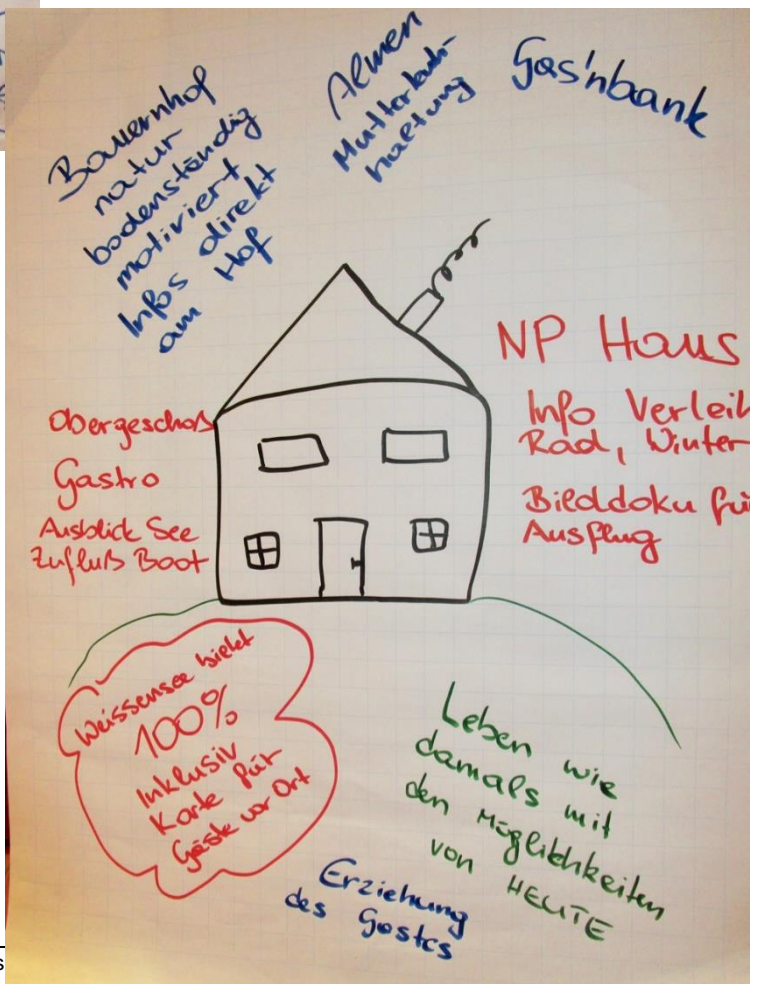 Bauernhof
natur
bodenständig
motiviert
Infos direkt
am Hof
Almen
Mutterkuh-
haltung
Gas'nbank
NP Haus
Info Verleih
Rad, Winter
Bilddoku für
Ausflug
Obergeschoß
Gastro
Ausblick See
Zufluß Boot
Weissensee bietet
100%
Inklusiv
Karte für
Gäste vor Ort
Leben wie
damals mit
den Möglichkeiten
von HEUTE
Erziehung
des Gastes